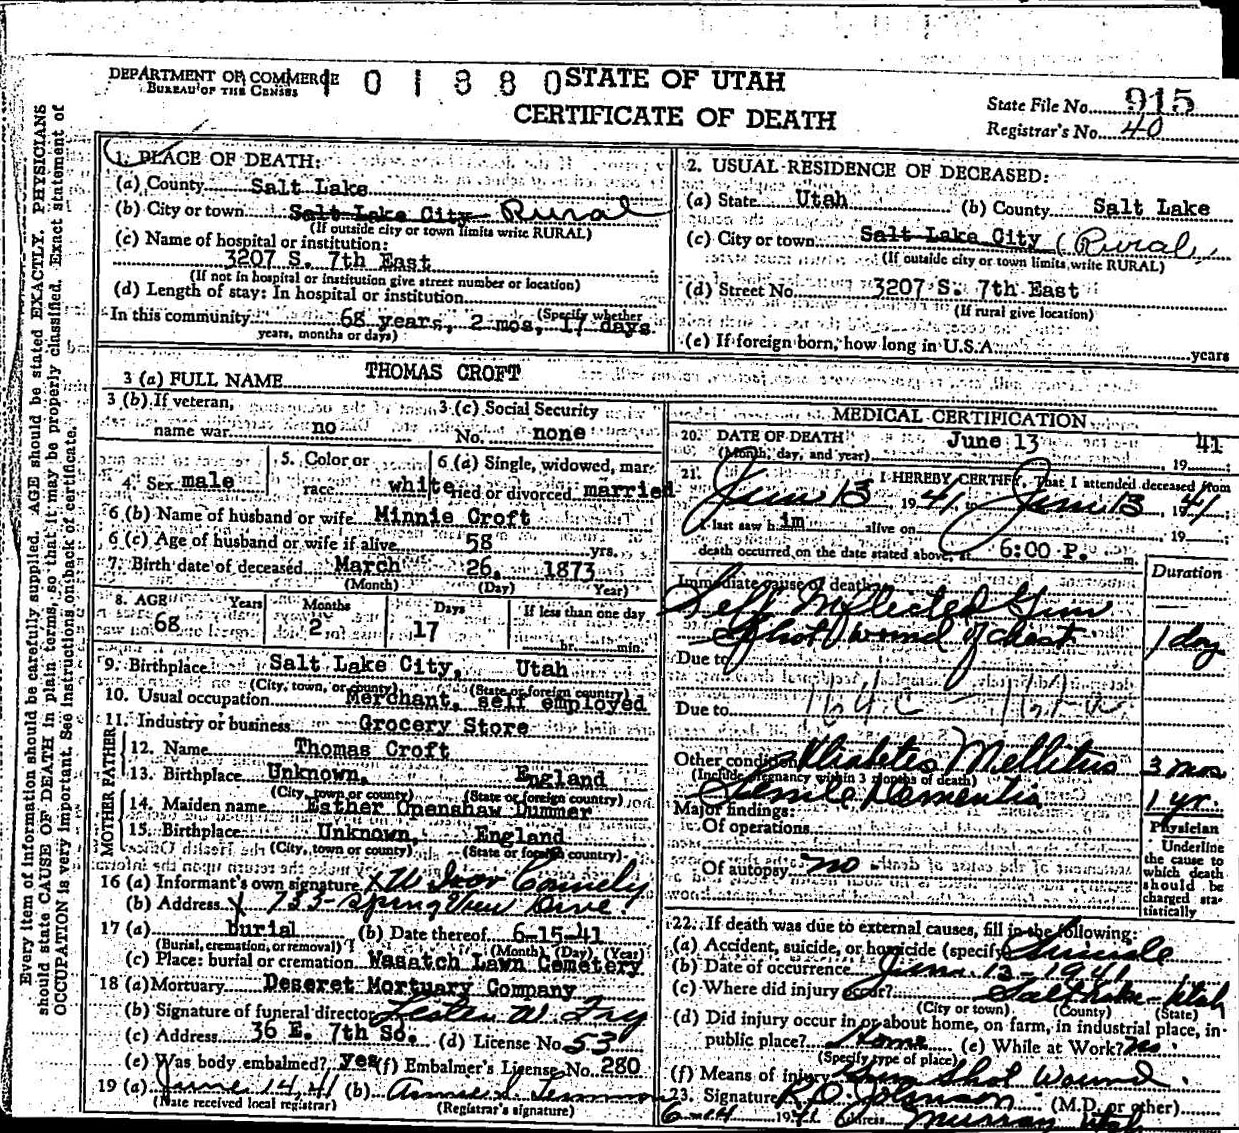 DEPARTMENT OF COMMERCE
BUREAU OF THE CENSUS
1 0 1 3 8 0
STATE OF UTAH
CERTIFICATE OF DEATH
State File No. 915
Registrar's No. 40
Every item of information should be carefully supplied. AGE should be stated EXACTLY. PHYSICIANS
should state CAUSE OF DEATH in plain terms, so that it may be properly classified. Exact statement of
OCCUPATION is very important. See instructions on back of certificate.
1. PLACE OF DEATH:
(a) County Salt Lake
(b) City or town Salt Lake City Rural
(If outside city or town limits write RURAL)
(c) Name of hospital or institution:
3207 S. 7th East
(If not in hospital or institution give street number or location)
(d) Length of stay: In hospital or institution
(Specify whether
In this community 68 years, 2 mos, 17 days
years, months or days)
2. USUAL RESIDENCE OF DECEASED:
(a) State Utah (b) County Salt Lake
(c) City or town Salt Lake City (Rural)
(If outside city or town limits, write RURAL)
(d) Street No. 3207 S. 7th East
(If rural give location)
(e) If foreign born, how long in U.S.A. years
3 (a) FULL NAME THOMAS CROFT
3 (b) If veteran,
name war no
3 (c) Social Security
No. none
4. Sex male
5. Color or
race white
6 (a) Single, widowed, mar-
ried or divorced married
6 (b) Name of husband or wife Minnie Croft
6 (c) Age of husband or wife if alive 58 yrs.
7. Birth date of deceased March 26, 1873
(Month) (Day) (Year)
8. AGE Years Months Days If less than one day
68 2 17 hr. min.
9. Birthplace Salt Lake City, Utah
(City, town, or county) (State or foreign country)
10. Usual occupation Merchant, self employed
11. Industry or business Grocery Store
FATHER
12. Name Thomas Croft
13. Birthplace Unknown, England
(City, town or county) (State or foreign country)
MOTHER
14. Maiden name Esther Openshaw Dummer
15. Birthplace Unknown, England
(City, town or county) (State or foreign country)
16 (a) Informant's own signature X W Ivor Connely
(b) Address X 733 Spring View Drive
17 (a) burial (b) Date thereof 6-15-41
(Burial, cremation, or removal) (Month) (Day) (Year)
(c) Place: burial or cremation Wasatch Lawn Cemetery
18 (a) Mortuary Deseret Mortuary Company
(b) Signature of funeral director Lester W. Fry
(c) Address 36 E. 7th So. (d) License No. 53
(e) Was body embalmed? yes (f) Embalmer's License No. 280
19 (a) June 14, 41 (b) Annie S.
(Date received local registrar) (Registrar's signature)
MEDICAL CERTIFICATION
20. DATE OF DEATH June 13 19 41
(Month, day, and year)
21. I HEREBY CERTIFY, That I attended deceased from
June 13, 1941, to June 13, 1941
I last saw him alive on 19
death occurred on the date stated above, at 6:00 P. m.
Duration
Immediate cause of death
Self Inflicted Gun
Shot wound of chest 1 day
Due to
Due to 164c
Other condition Diabetes Mellitus 3 mos
(Include pregnancy within 3 months of death)
Senile Dementia 1 yr.
Major findings:
Of operations
Of autopsy no
Physician
Underline
the cause to
which death
should be
charged sta-
tistically
22. If death was due to external causes, fill in the following:
(a) Accident, suicide, or homicide (specify) Suicide
(b) Date of occurrence June 13-1941
(c) Where did injury occur? Salt Lake - Utah
(City or town) (County) (State)
(d) Did injury occur in or about home, on farm, in industrial place, in
public place? Home (e) While at Work? No
(Specify type of place)
(f) Means of injury Gun Shot Wound.
23. Signature R. O. Johnson (M.D. or other)
6-14 1941 Address Murray Utah